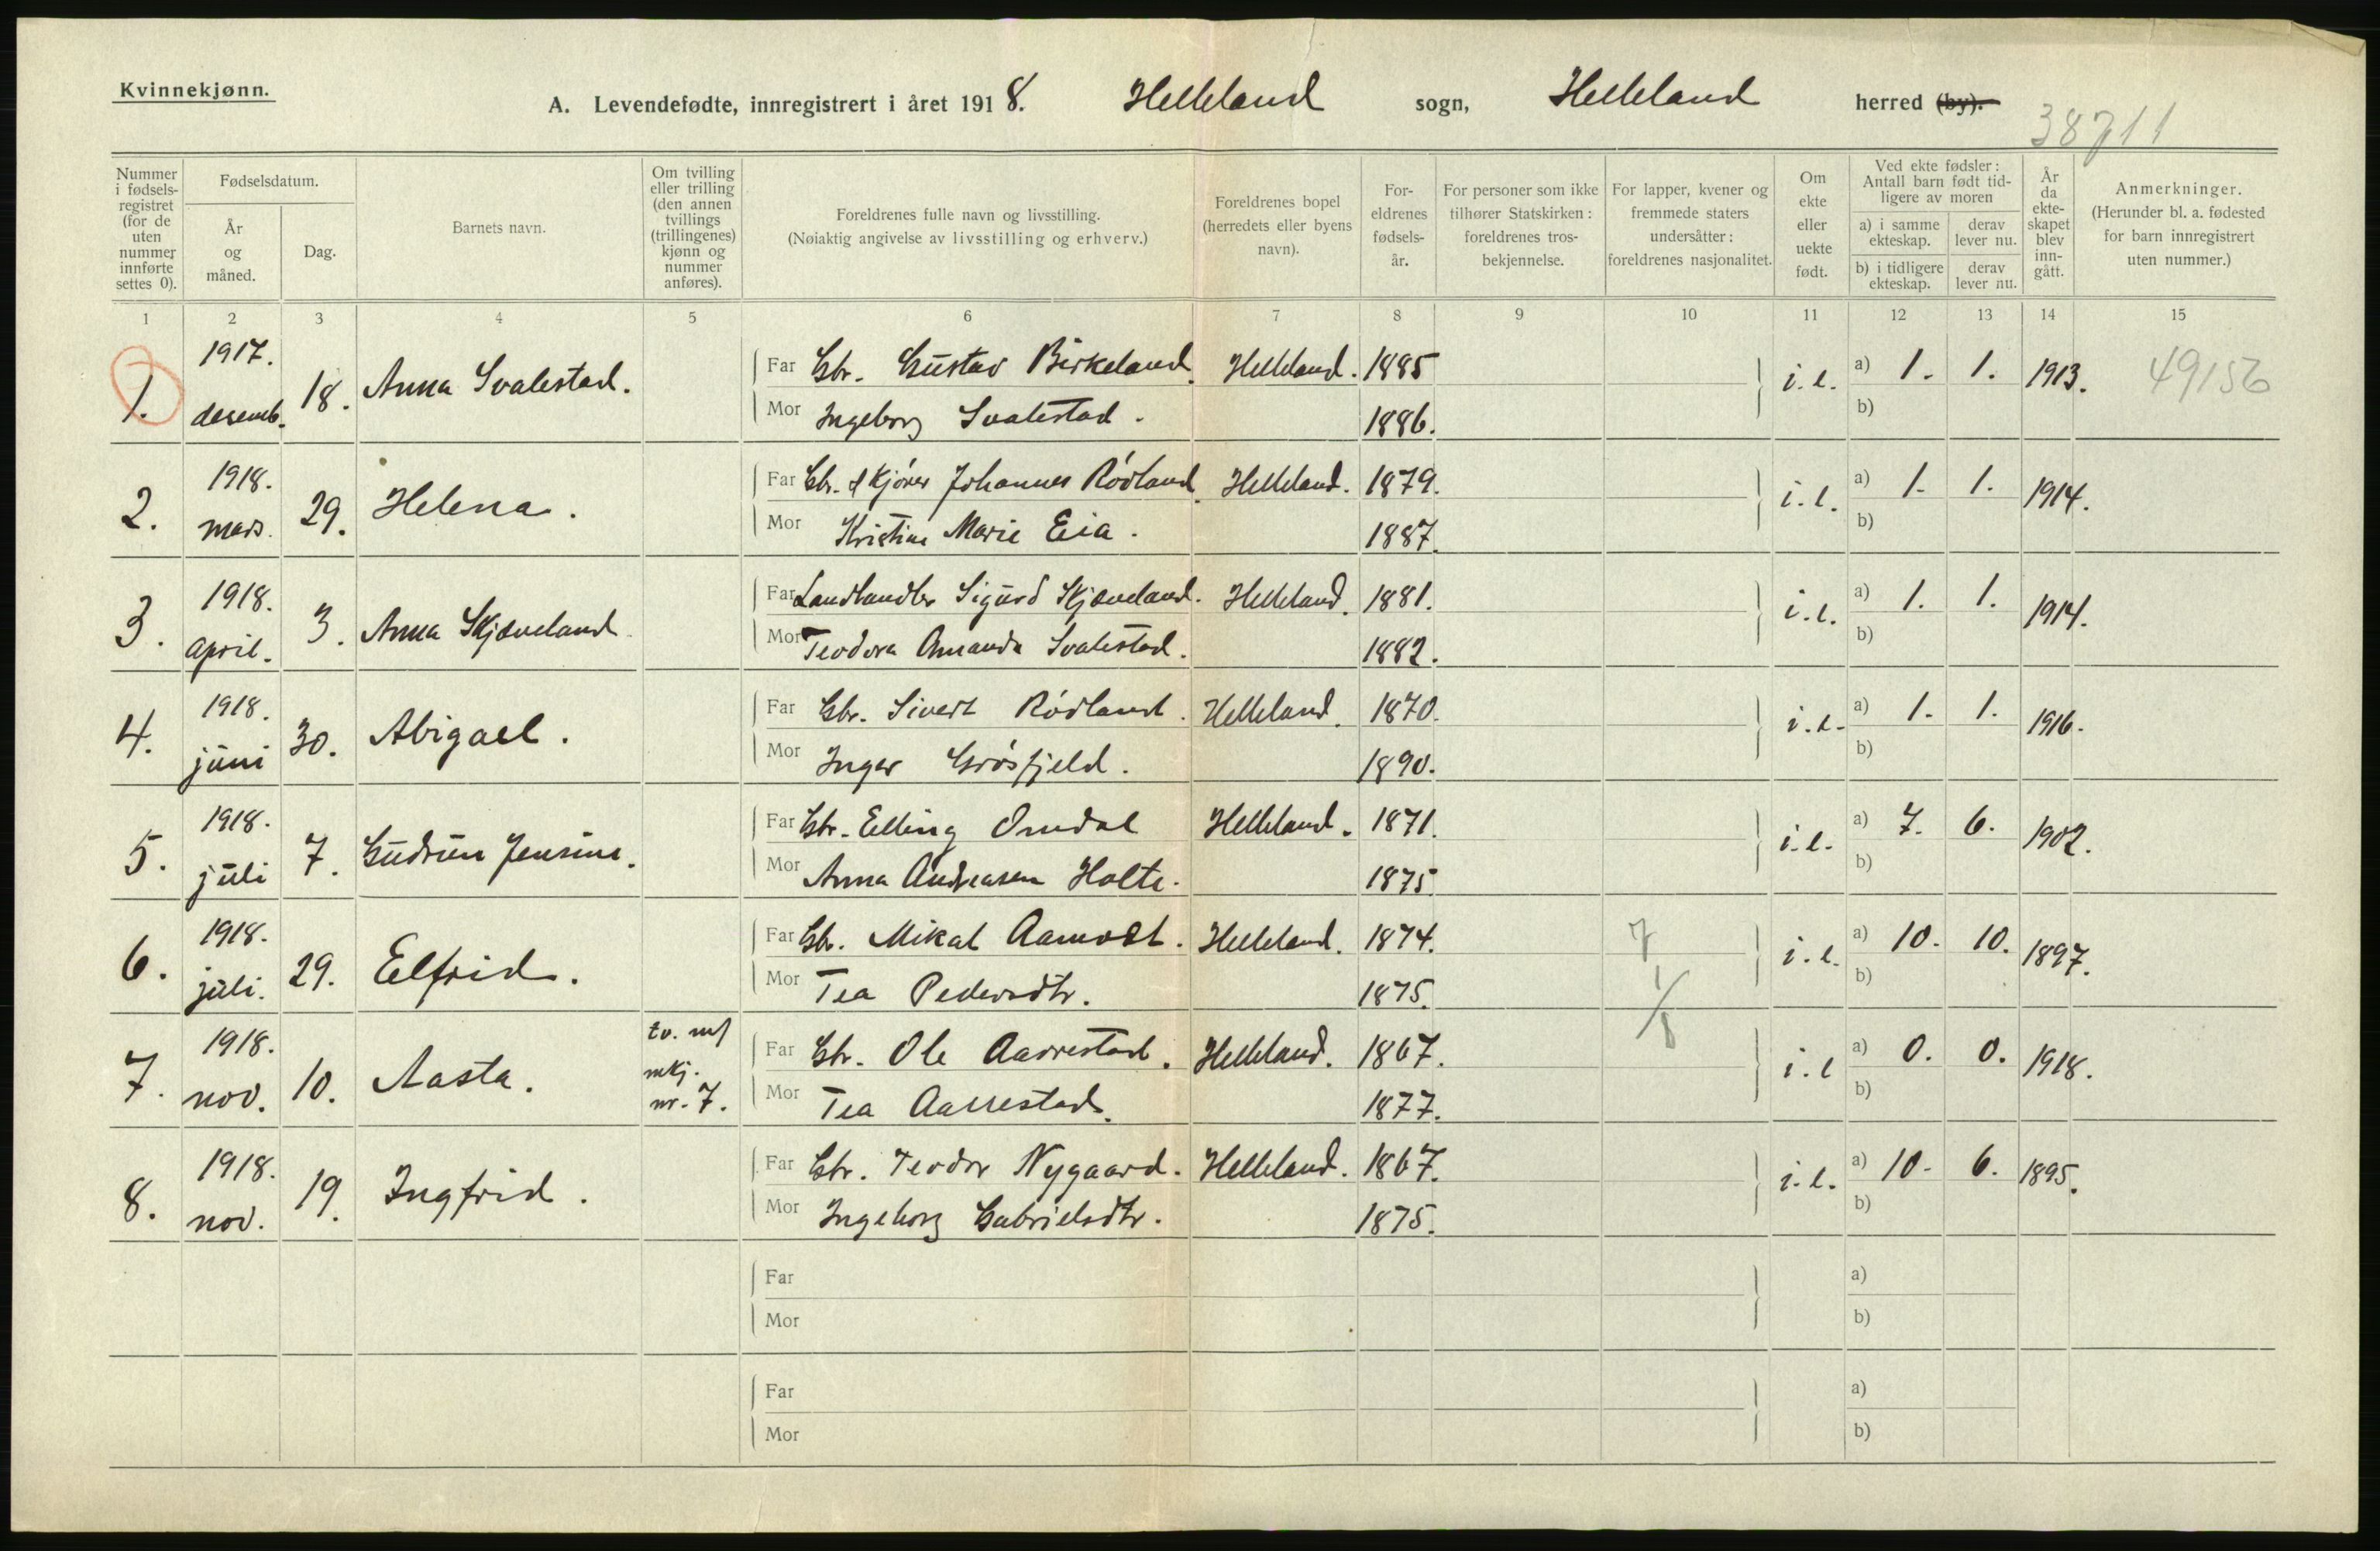 Kvinnekjønn.
A. Levendefødte, innregistrert i året 1918. Helleland sogn, Helleland herred (by).
38711
Nummer i fødsels-registret (for de uten nummer innførte settes 0).
Fødselsdatum.
År og måned.
Dag.
Barnets navn.
Om tvilling eller trilling (den annen tvillings (trillingenes) kjønn og nummer anføres).
Foreldrenes fulle navn og livsstilling.
(Nøiaktig angivelse av livsstilling og erhverv.)
Foreldrenes bopel (herredets eller byens navn).
For-eldrenes fødsels-år.
For personer som ikke tilhører Statskirken: foreldrenes tros-bekjennelse.
For lapper, kvener og fremmede staters undersåtter: foreldrenes nasjonalitet.
Om ekte eller uekte født.
Ved ekte fødsler: Antall barn født tid-ligere av moren
a) i samme ekteskap.
derav lever nu.
b) i tidligere ekteskap.
derav lever nu.
År da ekte-skapet blev inn-gått.
Anmerkninger.
(Herunder bl. a. fødested for barn innregistrert uten nummer.)
1 2 3 4 5 6 7 8 9 10 11 12 13 14 15
1. 1917. desemb. 18. Anna Svalestad. Far Gbr. Gustav Birkeland. Helleland. 1885 i.e. a) 1. 1. 1913. 49156
Mor Ingeborg Svalestad. 1886. b)
2. 1918. mars. 29. Helena. Far Gbr. & kjører Johannes Rödland. Helleland. 1879. i.e. a) 1. 1. 1914.
Mor Kristine Marie Eia. 1887. b)
3. 1918. april. 3. Anna Skjæveland. Far Landhandler Sigurd Skjæveland. Helleland. 1881. i.e. a) 1. 1. 1914.
Mor Teodora Amanda Svalestad. 1882. b)
4. 1918. juni 30. Abigael. Far Gbr. Sivert Rödland. Helleland. 1870. i.e. a) 1. 1. 1916.
Mor Inger Grósfjeld. 1890. b)
5. 1918. juli 7. Gudrun Jensine. Far Gbr. Elling Omdal Helleland. 1871. i.e. a) 7. 6. 1902.
Mor Anna Andreasen Holte. 1875 b)
6. 1918. juli. 29. Elfrid. Far Gbr. Mikal Aamodt. Helleland. 1874. 7 i.e. a) 10. 10. 1897.
Mor Tea Pedersdtr. 1875. 1/8 b)
7. 1918. nov. 10. Aasta. tv. m/ mkj. nr. 7. Far Gbr. Ole Aarrestad. Helleland. 1867. i.e a) 0. 0. 1918.
Mor Tea Aarrestad. 1877. b)
8. 1918. nov. 19. Ingfrid. Far Gbr. Teodor Nygaard. Helleland. 1867. i.e. a) 10. 6. 1895.
Mor Ingeborg Gabrielsdtr. 1875. b)
Far a)
Mor b)
Far a)
Mor b)